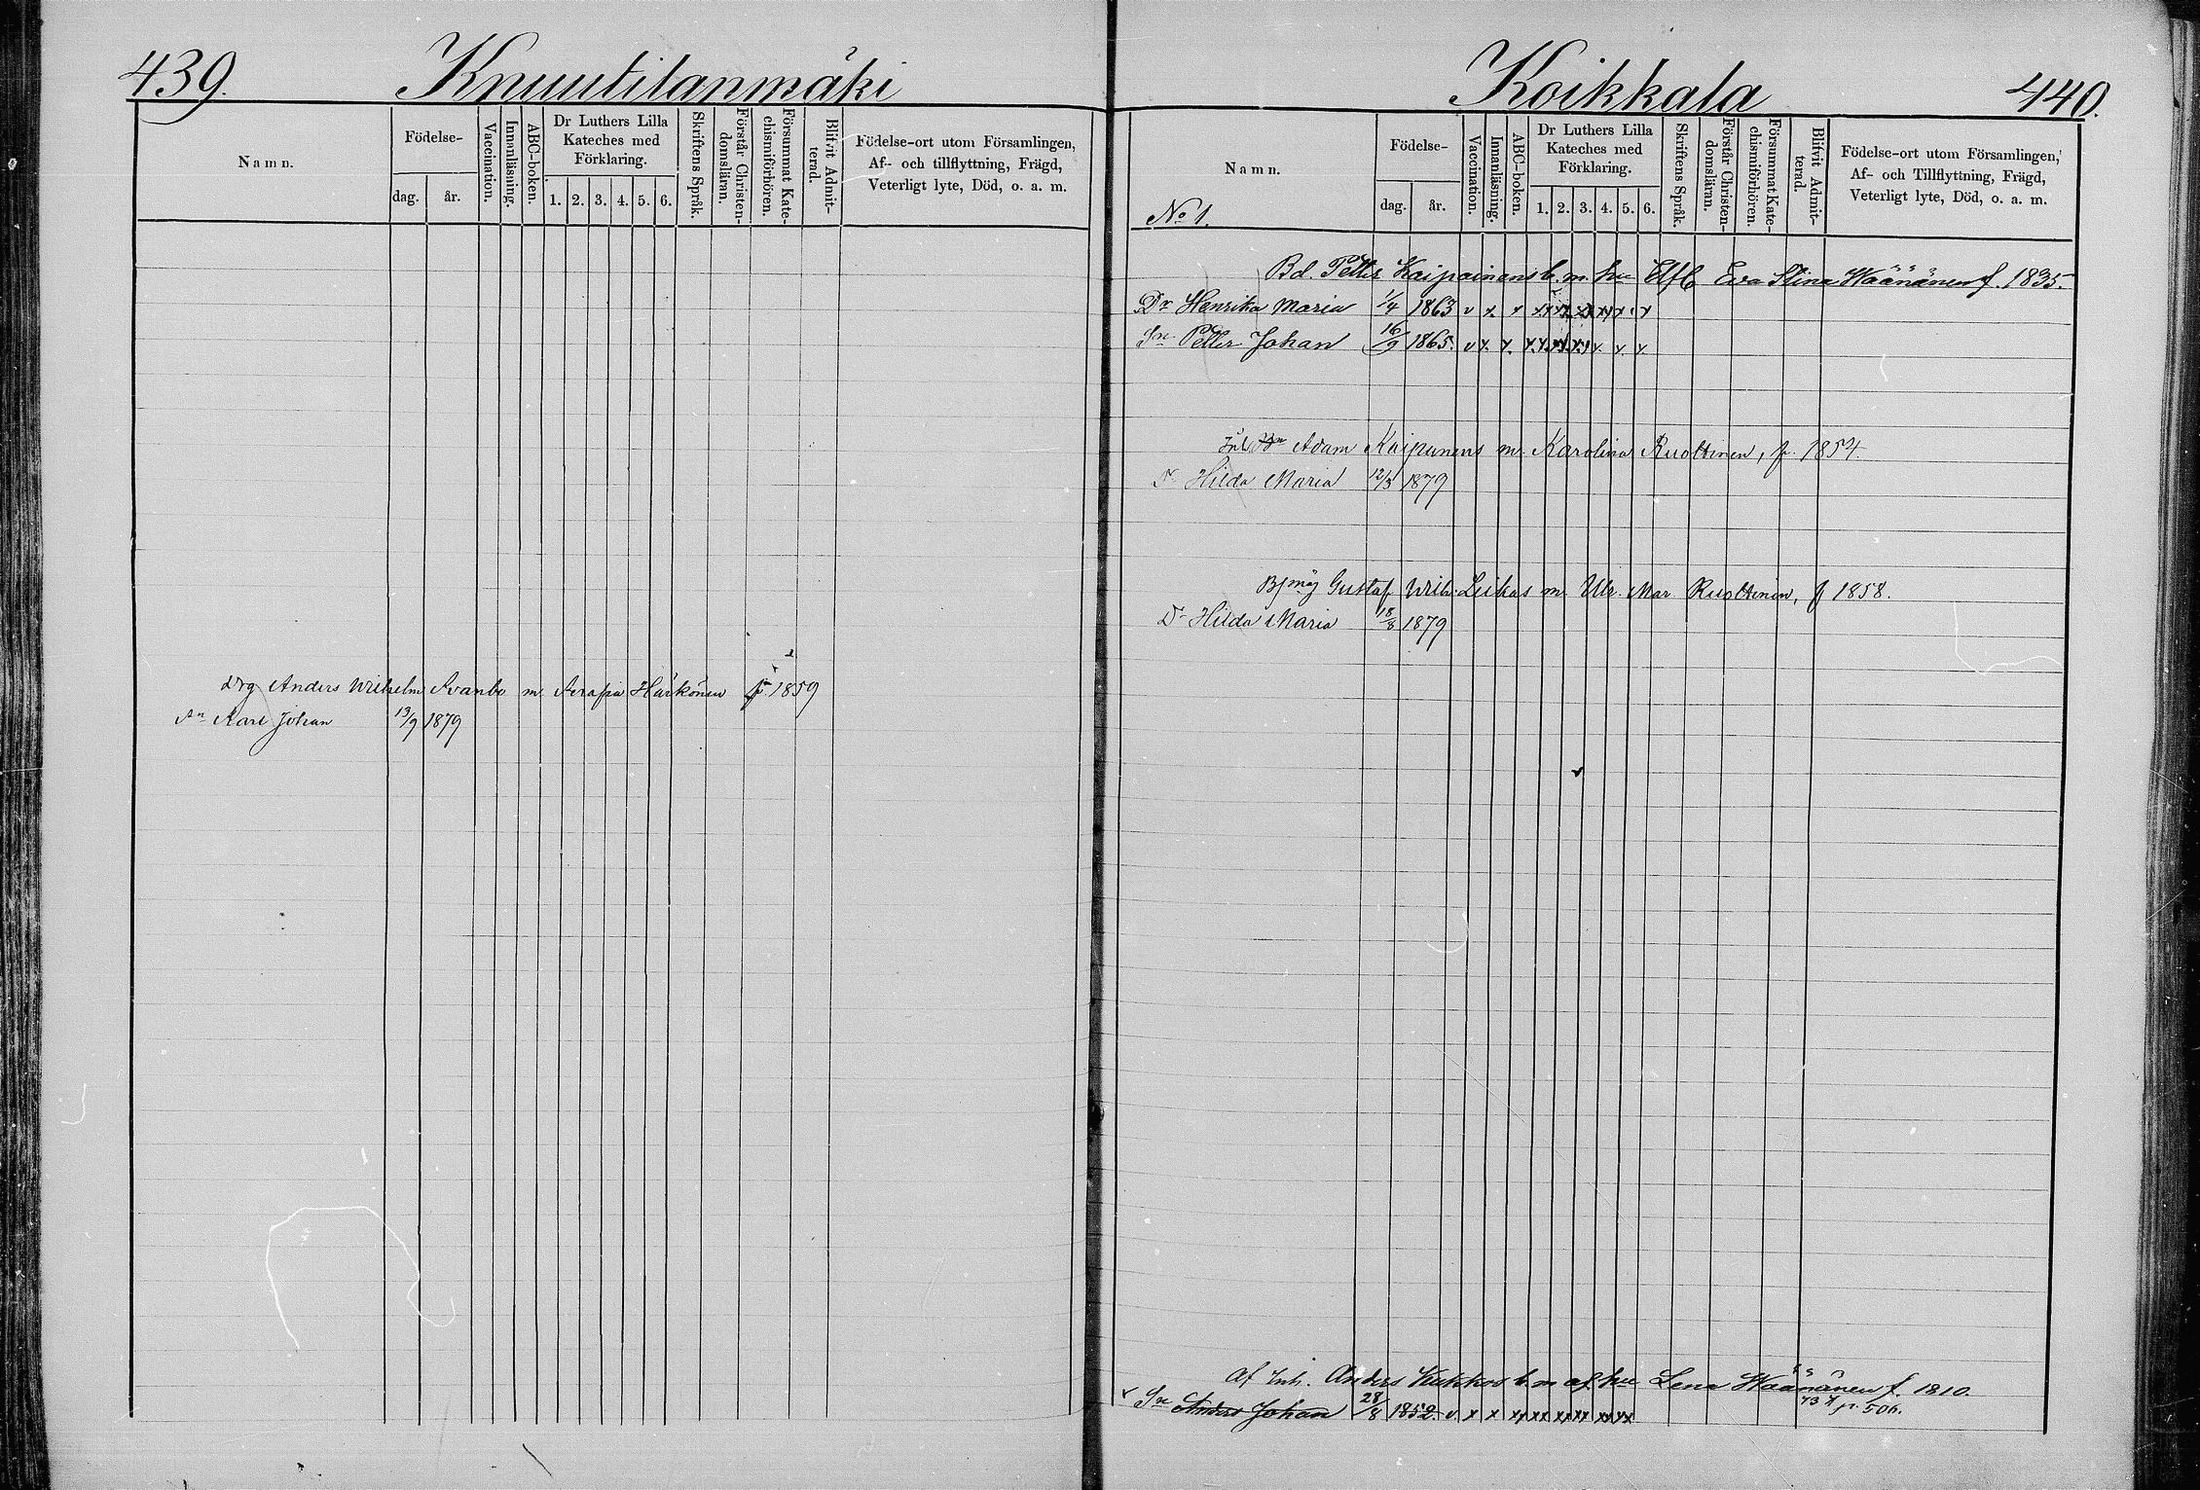 439.
Knuutilanmäki
Namn.
Födelse-
dag.
år.
Vaccination.
Innanläsning.
ABC-boken.
Dr Luthers Lilla
Kateches med
Förklaring.
1. 2. 3. 4. 5. 6.
Skriftens Språk.
Förstår Christen-
domsläran.
Försummat Kate-
chismiförhören.
Blifvit Admit-
terad.
Födelse-ort utom Församlingen,
Af- och tillflyttning, Frägd,
Veterligt lyte, Död, o. a. m.
Drg Anders Wilhelm Svanbo m. Serafia Härkönen f. 1859
Sn Karl Johan 13/9 1879
Koikkala
440.
Namn.
No 1.
Födelse-
dag.
år.
Vaccination.
Innanläsning.
ABC-boken.
Dr Luthers Lilla
Kateches med
Förklaring.
1. 2. 3. 4. 5. 6.
Skriftens Språk.
Förstår Christen-
domsläran.
Försummat Kate-
chismiförhören.
Blifvit Admit-
terad.
Födelse-ort utom Församlingen,
Af- och Tillflyttning, Frägd,
Veterligt lyte, Död, o. a. m.
Bd. Petter Kaipainens b. m. hu Eva Stina Wäänänen f. 1835.
Dr Henrika Maria 1/4 1863 v x x
Sn Petter Johan 16/9 1865. v x. x.
Inh Adam Kaipanens m. Karolina Ruottinen, f. 1854.
Dr Hilda Maria 12/3 1879
Gustaf Wilh. Leikas m. Ulr. Mar. Ruottinen, f 1858.
Dr Hilda Maria 18/8 1879
Af Inh. Anders Kukkos b. m af. hu Lena Wäänänen f. 1810.
Sn Anders Johan 28/8 1852. v x x xx xx xx xx xx xx
73 p. 506.